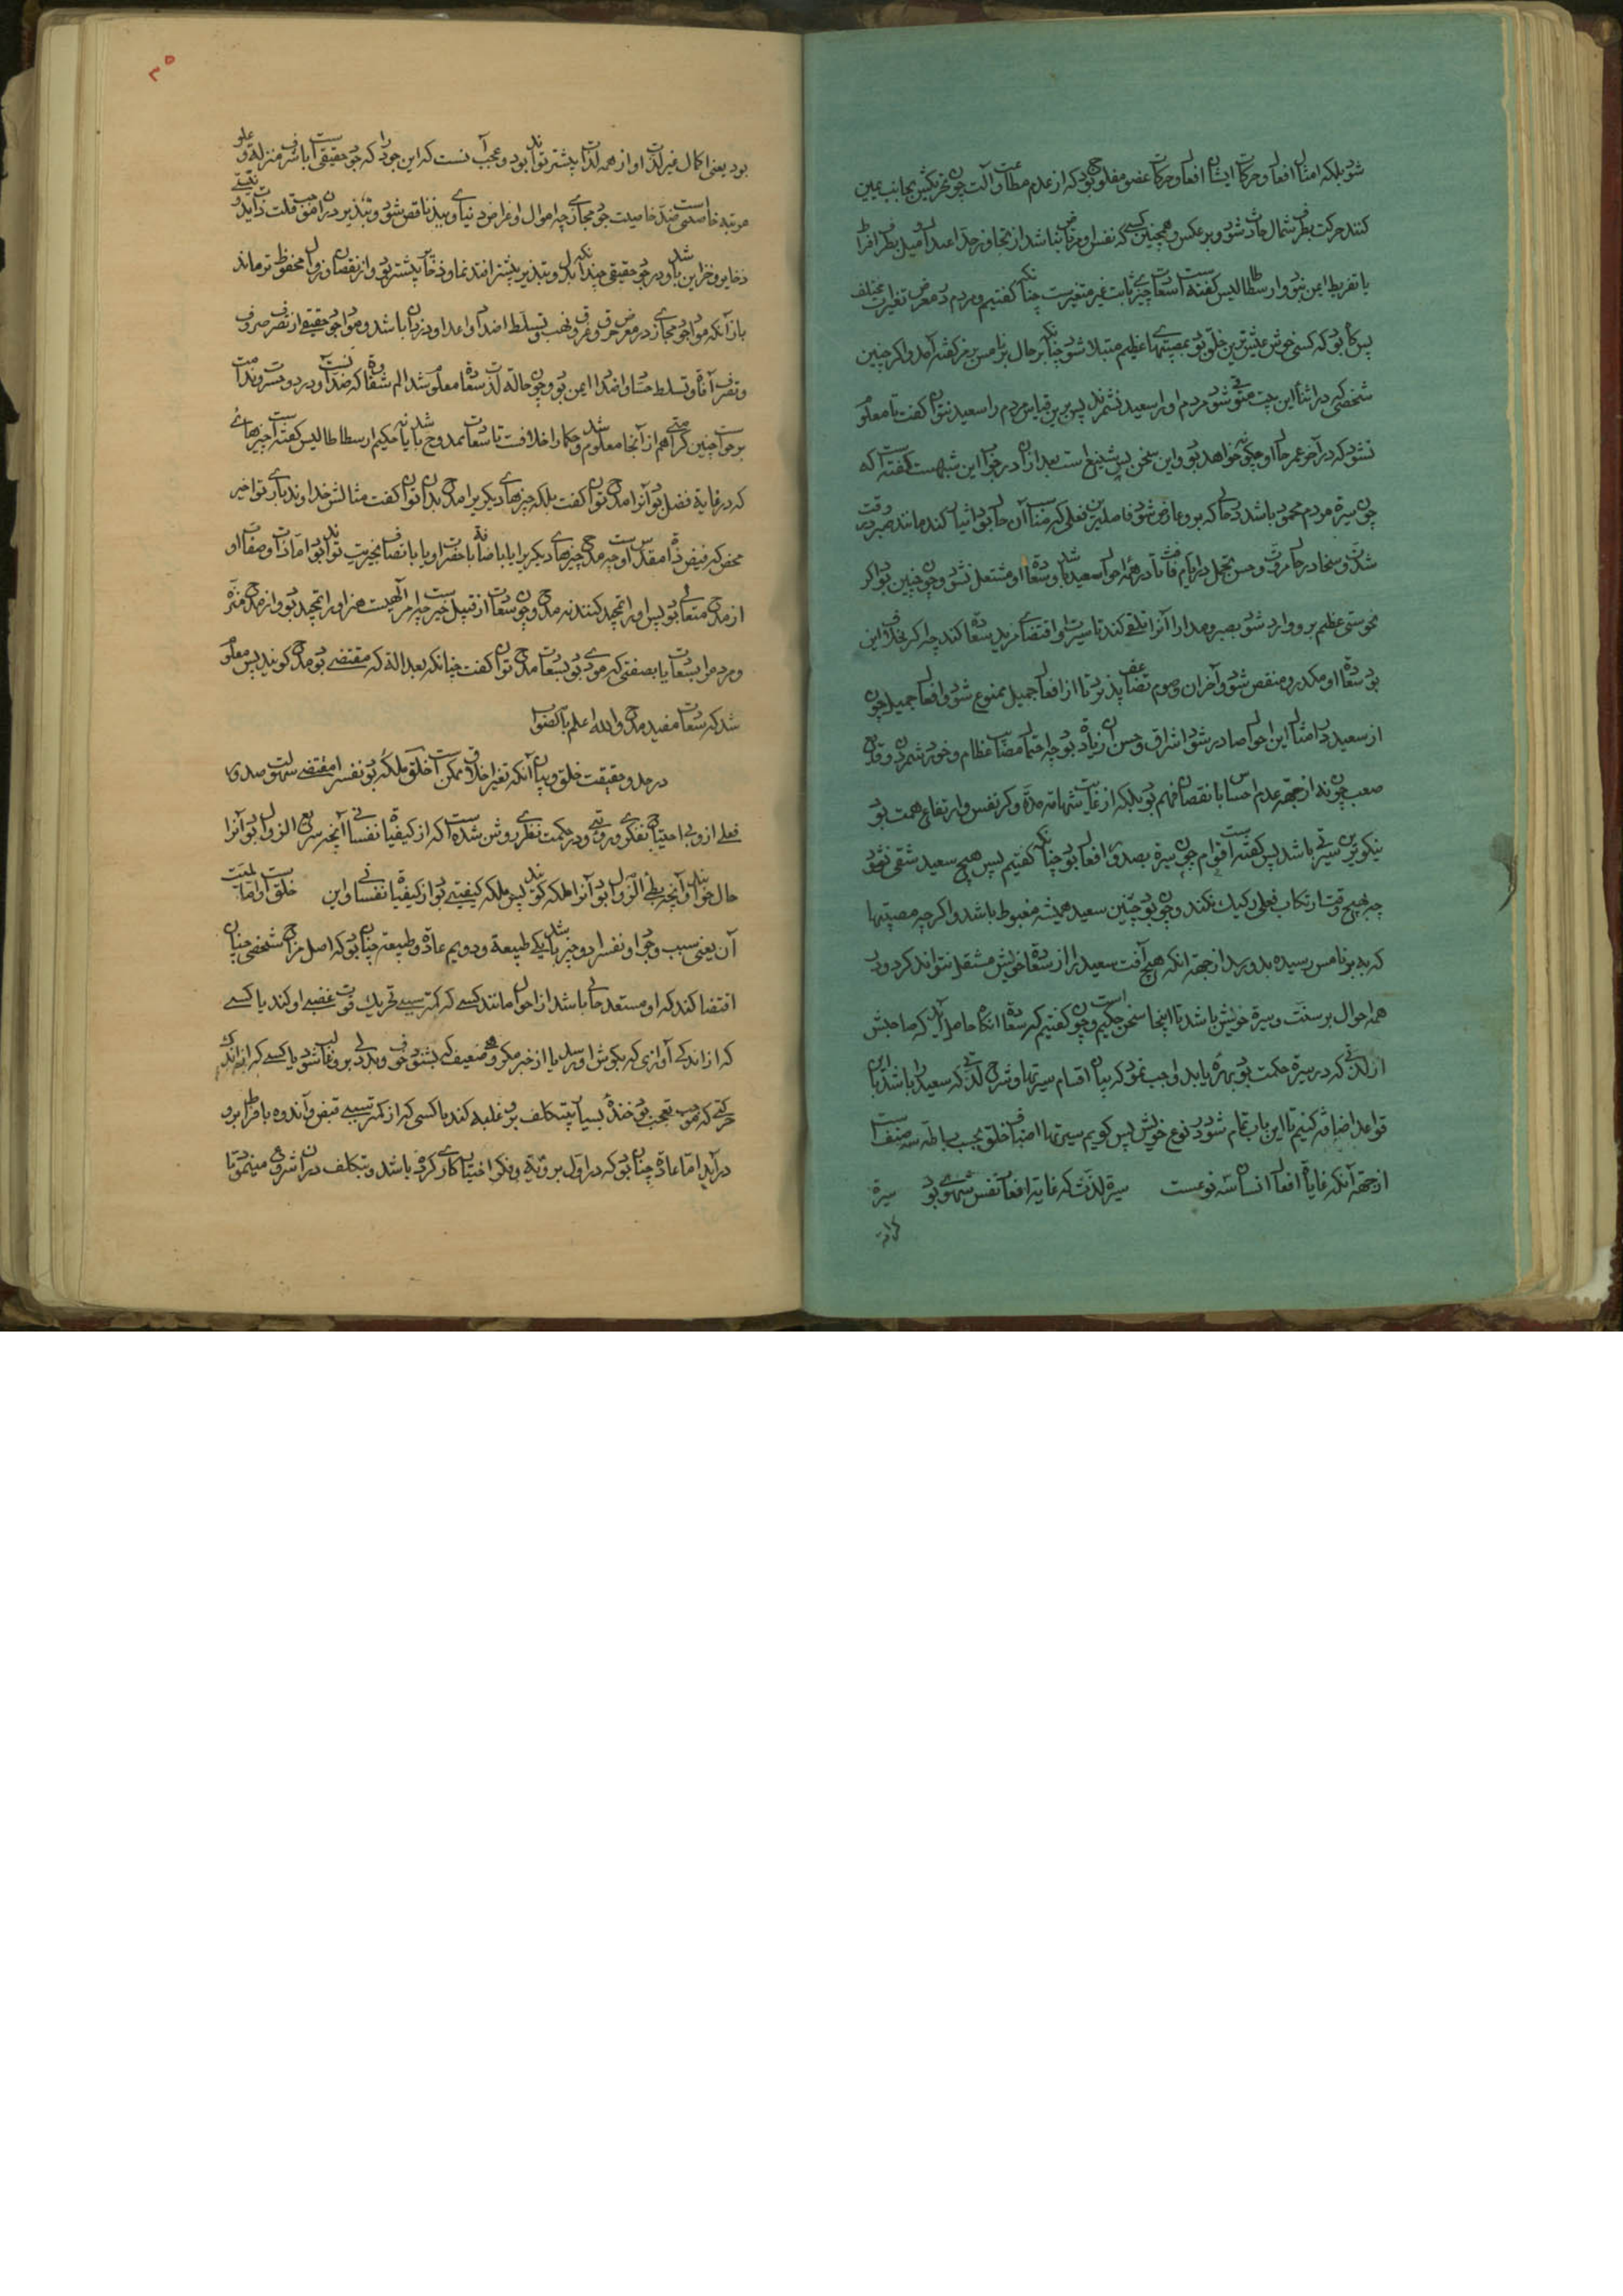 شود بلکه امثال افعال و حرکات ایشان افعال و حرکات عضو مفلوج بود که از عدم مطاوعت آلت چون تحریکش بجانب یمین
کنند حرکت بطرف شمال حادث شود و برعکس و همچنین کسی که نفس او مرتاض نباشد از تجاوز حد اعتدال و میل بطرف افراط
یا تفریط ایمن نبود و ارسطاطالیس گفته است سعادت چیزی ثابت غیر متغیرست چنانکه گفتیم و مردم در معرض تغیرات مختلف
پس گاه بود که کسی خوش عیش ترین خلق بود بمصیبتهای عظیم مبتلا شود چنانکه بر حال برنامس برمز گفته آمد و اگر چنین
شخصی که در اثنا این متوفی شود مردم او را سعید نشمرند پس برین قیاس مردم را سعید نتوان گفت تا معلوم
نشود که در آخر عمر حال او چگونه خواهد بود و این سخن پس شنیع است بعد از آن در جواب این شبهت گفته است که
چون سیرة مردم محمود باشد در حالی که برو عارض شود فاضلترین فعلی که مناسب آن حال بود ایثار کند مانند صبر در وقت
شدت و سخا در حال ثروت و حسن تجمل در ایام فاقت تا در همه احوال سعید باشد و سعادة او منتقل نشود و چون چنین بود اگر
نحوستی عظیم برو وارد شود بصبر و مدارا آنرا تلقی کند تا سیرت او اقتضاء مزید سعادة کند چه اگر بخلاف این
بود سعادة او مکدر و منقص شود و آخران و هموم تضاعف پذیرد تا از افعال جمیل ممنوع شود و افعال جمیل چون
از سعید در امثال این احوال صادر شود اشراق و حسن آن زیادة بود چه احتمال مصائب عظام و خورد شمردن وقایع
صعب چون نه از جهة عدم احساس یا نقصان فهم بود بلکه از غایت شهامة ذات و کبر نفس و ارتفاع همت بود
نیکوترین سیرتی باشد پس گفته است قوام چون سیرة بصدور افعال بود چنانکه گفتیم پس هیچ سعید شقی نشود
چه بهیچ وقت ارتکاب فعلی رکیک نکند و چون بود چنین سعید همیشه مغبوط باشد و اگرچه مصیبتها
که به برنامس رسیده بدو رسد از جهة انکه هیچ آفت سعید را از سعادة خویش منتقل نتواند کرد و در
همه احوال بر سنت و سیرة خویش باشد تا اینجا سخن حکیم است و چون گفتیم که سعادة انگاه حاصل آید که صاحبش
از لذتی که در سیرة حکمت بود بهره یابد واجب نمود که بیان اقسام سیرتها و شرح لذتی که سعید را باشد باین
قواعد اضافه کنیم تا این باب تمام شود در نوع خویش پس گویم سیرتها اصناف خلق بحسب بساطه سه صنف است
از جهة آنکه غایات افعال انسان سه نوعست سیرة لذت که غایة افعال نفس شهوی بود سیرة
کرامة
۳۵
بود یعنی اکمال غیر لذت او از همه لذات بیشتر تواند بود و عجب آنست که این جود را که جود حقیقی است با شرف منزلة و علو
مرتبه خاصیتی است ضد خاصیت جود مجازی چه اموال و اعراض دنیاوی ببذل ناقص شود و تبذیر در آن موجب قلت ذات ید و نیستی
ذخایر و خزاین باشد و در جود حقیقی چندانکه بذل و تبذیر بیشتر افتد نما و ذخایر بیشتر بود و از نقصان و زوال محفوظ تر ماند
باز آنکه مواد جود مجازی در معرض حرق و غرق و نهب و تسلط اضداد و اعدا و دزدان باشد و مواد جود حقیقی از تصرف صروف
و تصرف آفات و تسلط حساد و اضداد ایمن بود و چون حالة لذت سعادة معلوم شد الم شقاوة که ضد آنست و درد و حسرت و ندامت
بر فوات چنین کرامتی هم از آنجا معلوم شد و حکما را خلافست تا سعادت ممدوح باشد یا نه حکیم ارسطاطالیس گفته است چیزهائی
که در غایة فضل بود آنرا مدح نتوان گفت بلکه چیزهای دیگر را مدح بدان توان گفت مثالش خداوند باری تعالی و خیر
محض که فیض ذات مقدس اوست چه مدح چیزهای دیگر را یا باضافة با حضرت او یا باتصاف بخیریت تواند بود اما ذات و صفات او
از مدح متعالی بود پس او را تمجید کنند نه مدح و چون سعادت از قبیل خیرست چه امر الهیست هم او را تمجید بود و از مدح منزه
و مردم را بسعادت یا بصفتی که مودی بود بسعادت مدح توان گفت چنانکه بعدالة که مقتضی بود مدح گویند پس معلوم
شد که سعادت مفید مدح و الله اعلم بالصواب
در حد و حقیقت خلق و بیان آنکه تغیر اخلاق ممکن است خلق ملکه بود نفس را مقتضی سهولت صدور
فعلی از و بی احتیاج تفکری و رویتی و در حکمت نظری روشن شده است که از کیفیات نفسانی آنچه سریع الزوال بود آنرا
حال خوانند و آنچه بطئ الزوال بود آنرا ملکه گویند پس ملکه کیفیتی بود از کیفیات نفسانی و این خلق است و اما لمیت
آن یعنی سبب وجود او نفس را دو چیز باشد یکی طبیعة و دویم عادة و طبیعة چنان بود که اصل مزاج شخصی چنان
اقتضا کند که او مستعد حالی باشد از احوال مانند کسی که کمتر سببی تحریک قوت غضبی او کند یا کسی
که از اندکی آوازی که بگوش او رسد یا از خبر مکروهی ضعیف که بشنود خوف و بددلی برو غالب شود یا کسی که از اندک
حرکتی که موجب تعجب بود خندة بسیار بی تکلف برو غلبه کند یا کسی که از کمتر سببی قبض و اندوه بافراط برو
در آید اما عادة چنان بود که در اول برویة و فکر اختیار کاری کرده باشد و بتکلف در آن شروع مینمود تا